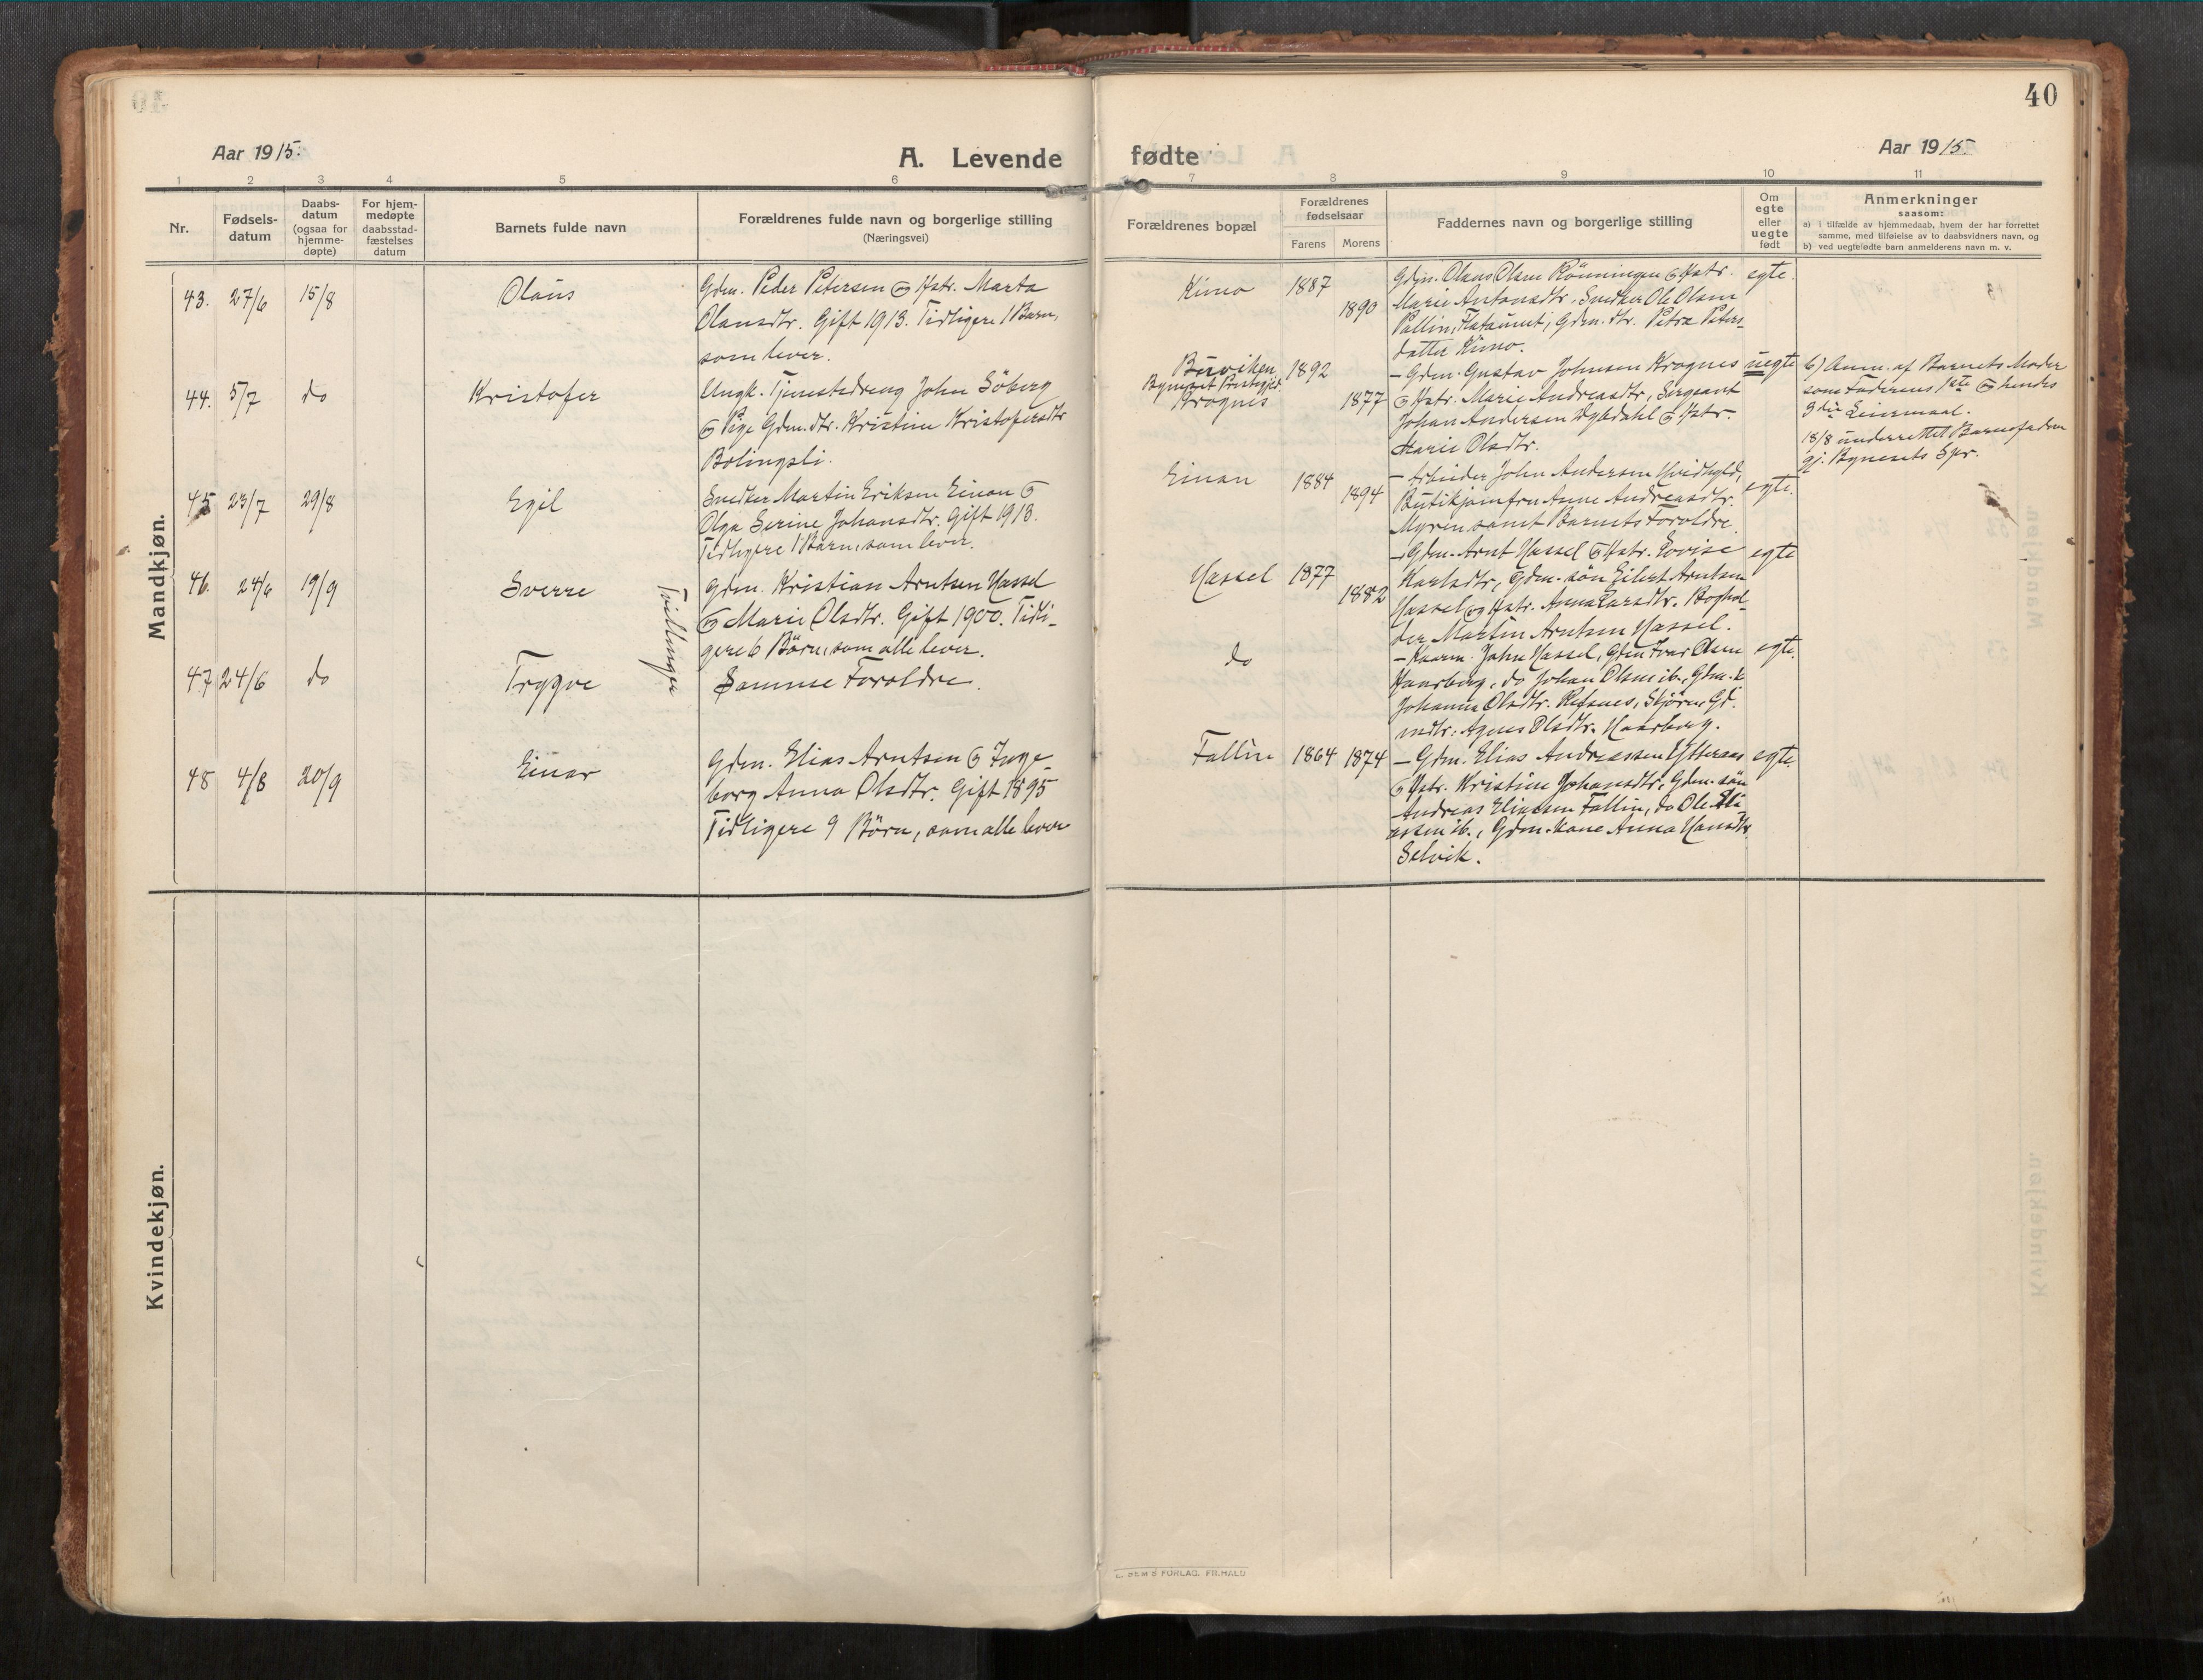 40
Aar 1915.
A. Levende fødte
Aar 1915
1 2 3 4 5 6 7 8 9 10 11
Nr.
Fødsels-
datum
Daabs-
datum
(ogsaa for
hjemme-
døpte)
For hjem-
medøpte
daabsstad-
fæstelses
datum
Barnets fulde navn
Forældrenes fulde navn og borgerlige stilling
(Næringsvei)
Forældrenes bopæl
Forældrenes
fødselsaar
Farens Morens
Faddernes navn og borgerlige stilling
Om
egte
eller
uegte
født
Anmerkninger
saasom:
a) i tilfælde av hjemmedaab, hvem der har forrettet
samme, med tilføielse av to daabsvidners navn, og
b) ved uegtefødte barn anmelderens navn m. v.
Mandkjøn.
43. 27/6 15/8 Olaus
Gdm. Peder Petersen og Hstr. Marta
Olausdtr. Gift 1913. Tidligere 1 Barn,
som lever.
Kimo 1887 1890
Gdm. Olaus Olsen Rönningen og Hstr.
Marie Antonsdtr., Snedker Ole Olsen
Gdm. dtr. Petra Peters-
datter Kimo.
egte.
44. 5/7 do Kristofer
Ungk. Tjenestedreng John Söberg
og Pige Gdm. dtr. Kristine Kristofersdtr
Bolingsli.
Buviken,
Bynesset Prestegjeld
Krognes
1892 1877
- Gdm. Gustav Johnsen Krognes
og Hstr. Marie Andreasdtr, Sergeant
Johan Andersen og Hstr.
Marie Olsdtr.
uegte
b) Anm. af Barnets Moder
som Faderens 1ste og hendes
3die Leiermaal.
18/8 underrettet Barnefaderen
gj. Bynesets Spr.
45 23/7 29/8 Egil
Snedker Martin Eriksen Einan og
Olga Serine Johansdtr. Gift 1913.
Tidligere 1 Barn, som lever.
Einan 1884 1894
- Arbeider John Andersen
Butikjomfru Anne Andreasdtr.
Myren samt Barnets Foroldre.
egte.
46. 24/6 19/9 Sverre
Tvillinger
Gdm. Kristian Arntsen Hassel
og Marie Olsdtr. Gift 1900. Tidli-
gere 6 Börn, som alle lever.
Hassel 1877 1882
- Gdm. Arnt Hassel og Hstr. Lovise
Karlsdtr, Gdm. sön Eilert Arntsen
Hassel og Hstr. Anna Larsdtr. Boghol-
der Martin Arntsen Hassel.
egte
47 24/6 do Trygve
Samme Foroldre.
do
- Kaarm. John Hassel, Gdm Ivar Olsen
Haarberg, do Johan Olsen ib., Gdm. k
Johanna Olsdtr. Refsnes, Skjörn, Gd.
mdtr. Agnes Olsdtr. Haarberg.
egte.
48 4/8 20/9 Einar
Gdm. Elias Arntsen og Inge-
borg Anna Olsdtr. Gift 1895
Tidligere 9 Börn, som alle lever
Fallin 1864 1874
- Gdm. Elias Andreassen Ytteraas
og Hstr. Kristine Johansdtr, Gdm. sön
Andreas Eliassen Fallin, do Ole Eli-
assen ib., Gdm. kone Anna Hansdtr.
Selvik.
egte.
Kvindekjøn.